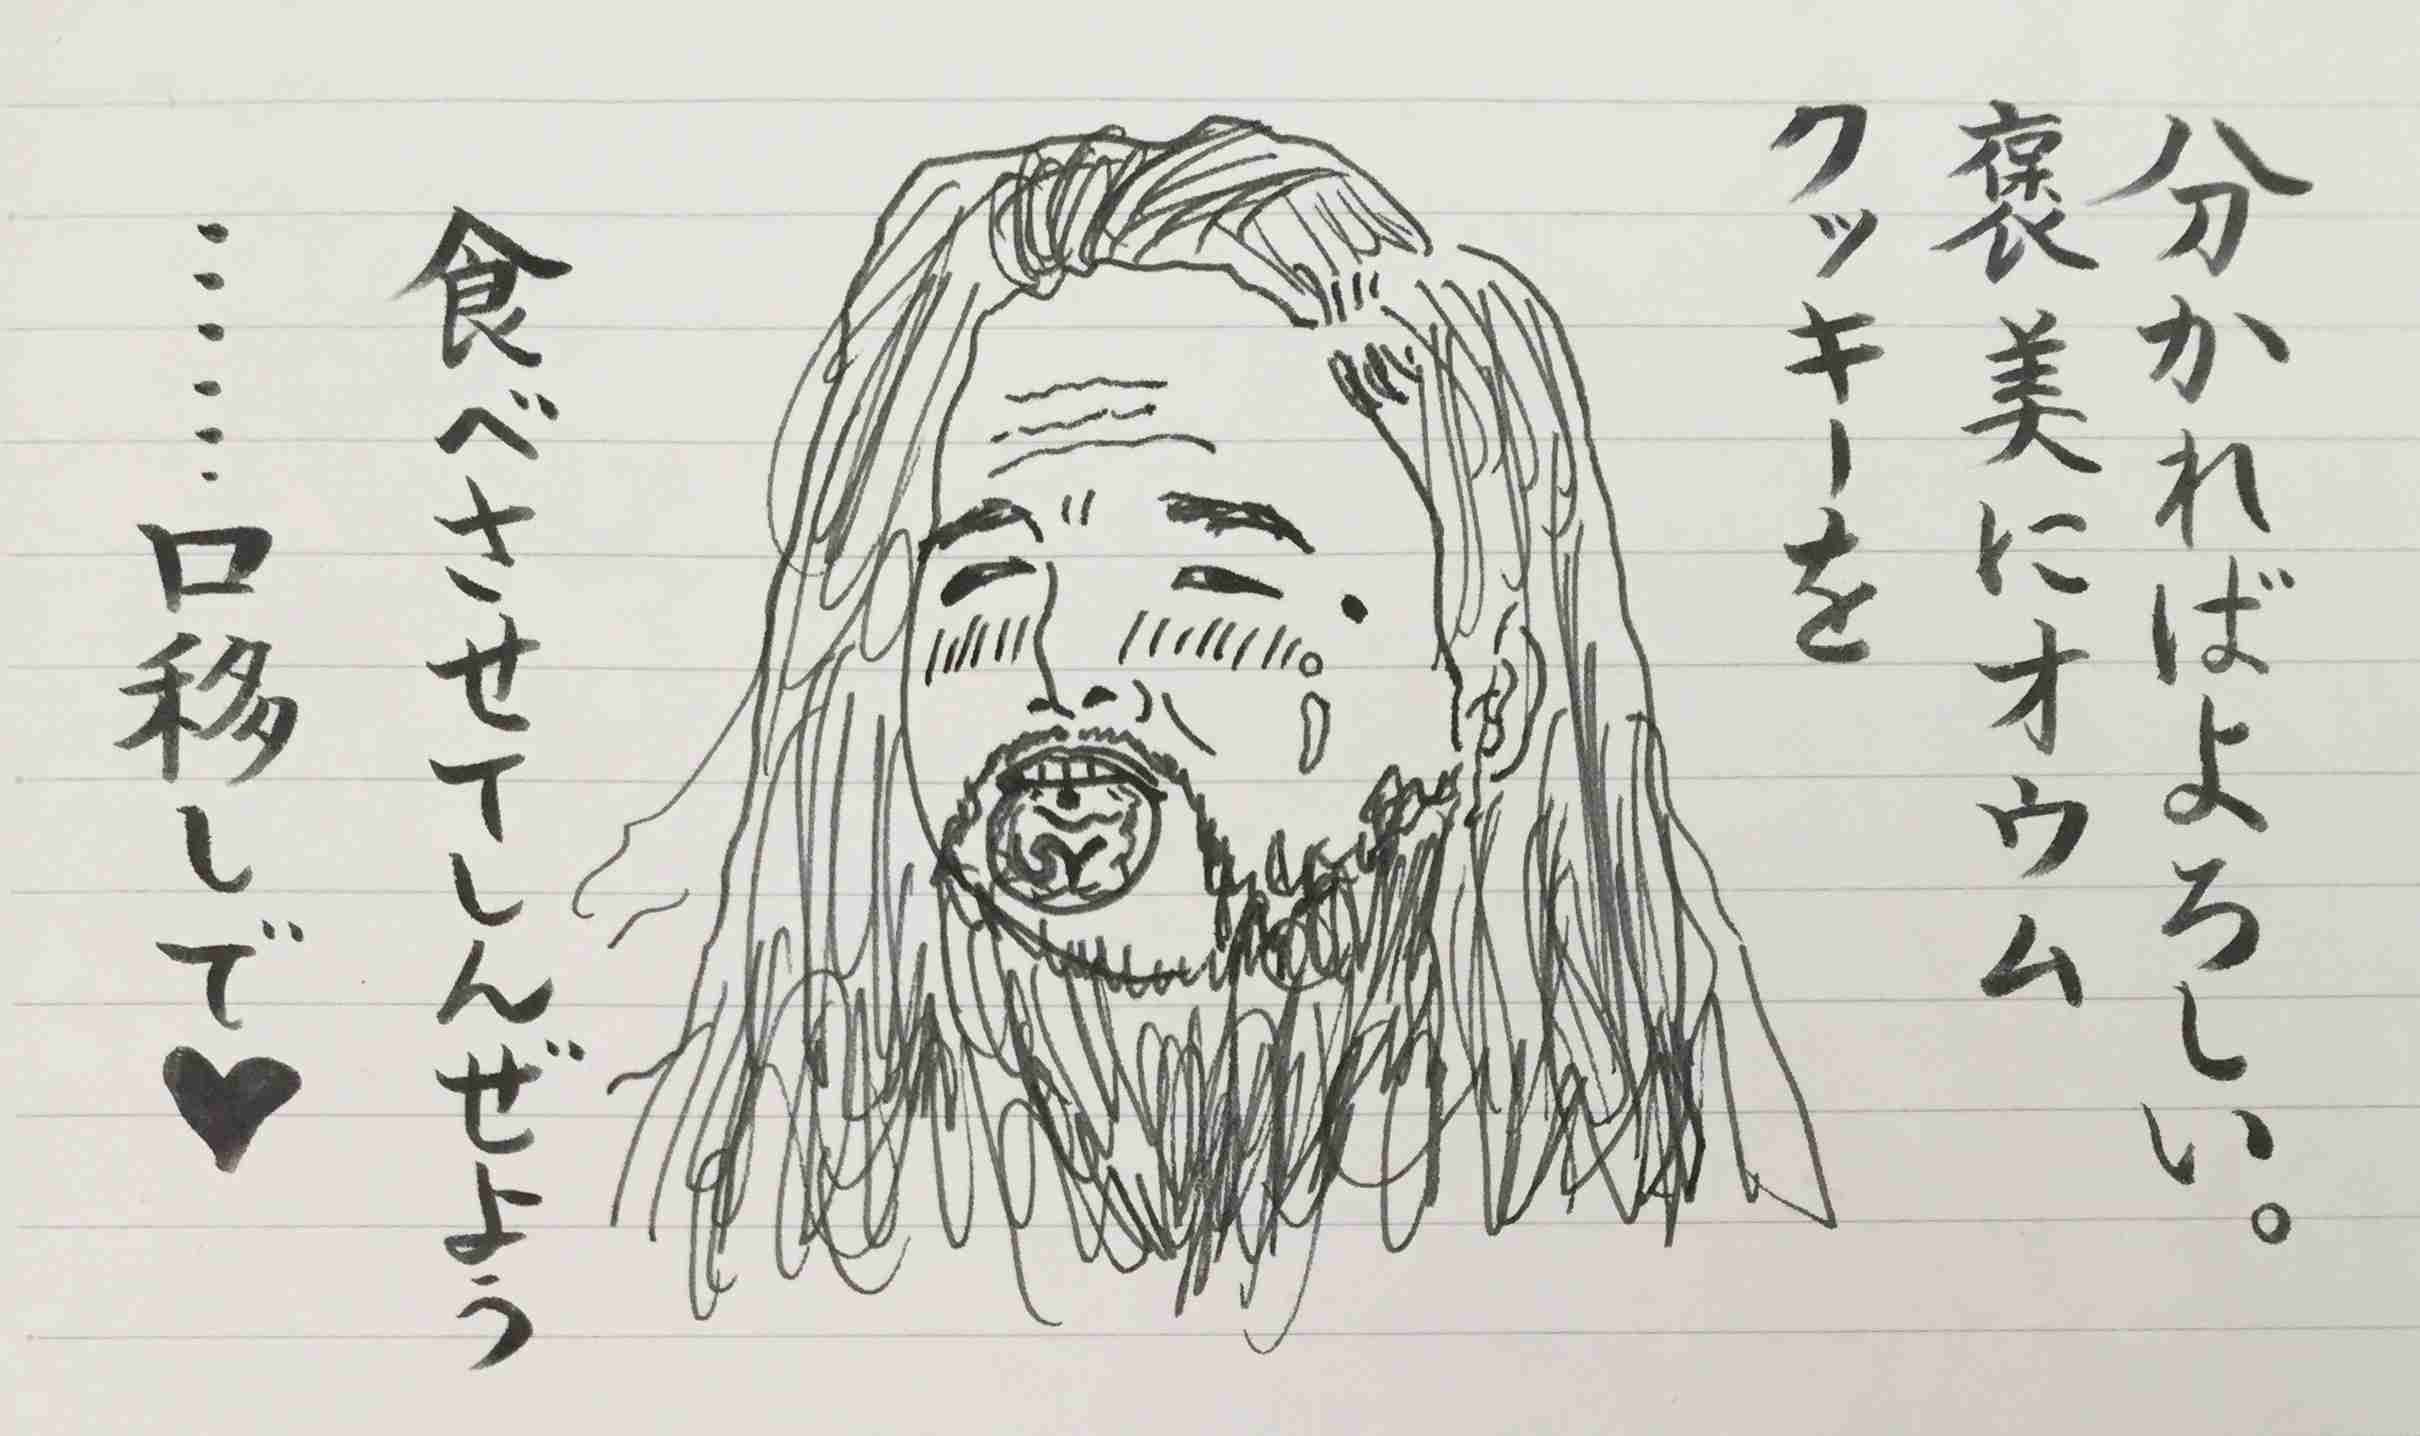 分かればよろしい。
褒美にオウム
クッキーを
食べさせてしんぜよう
……口移しで♥